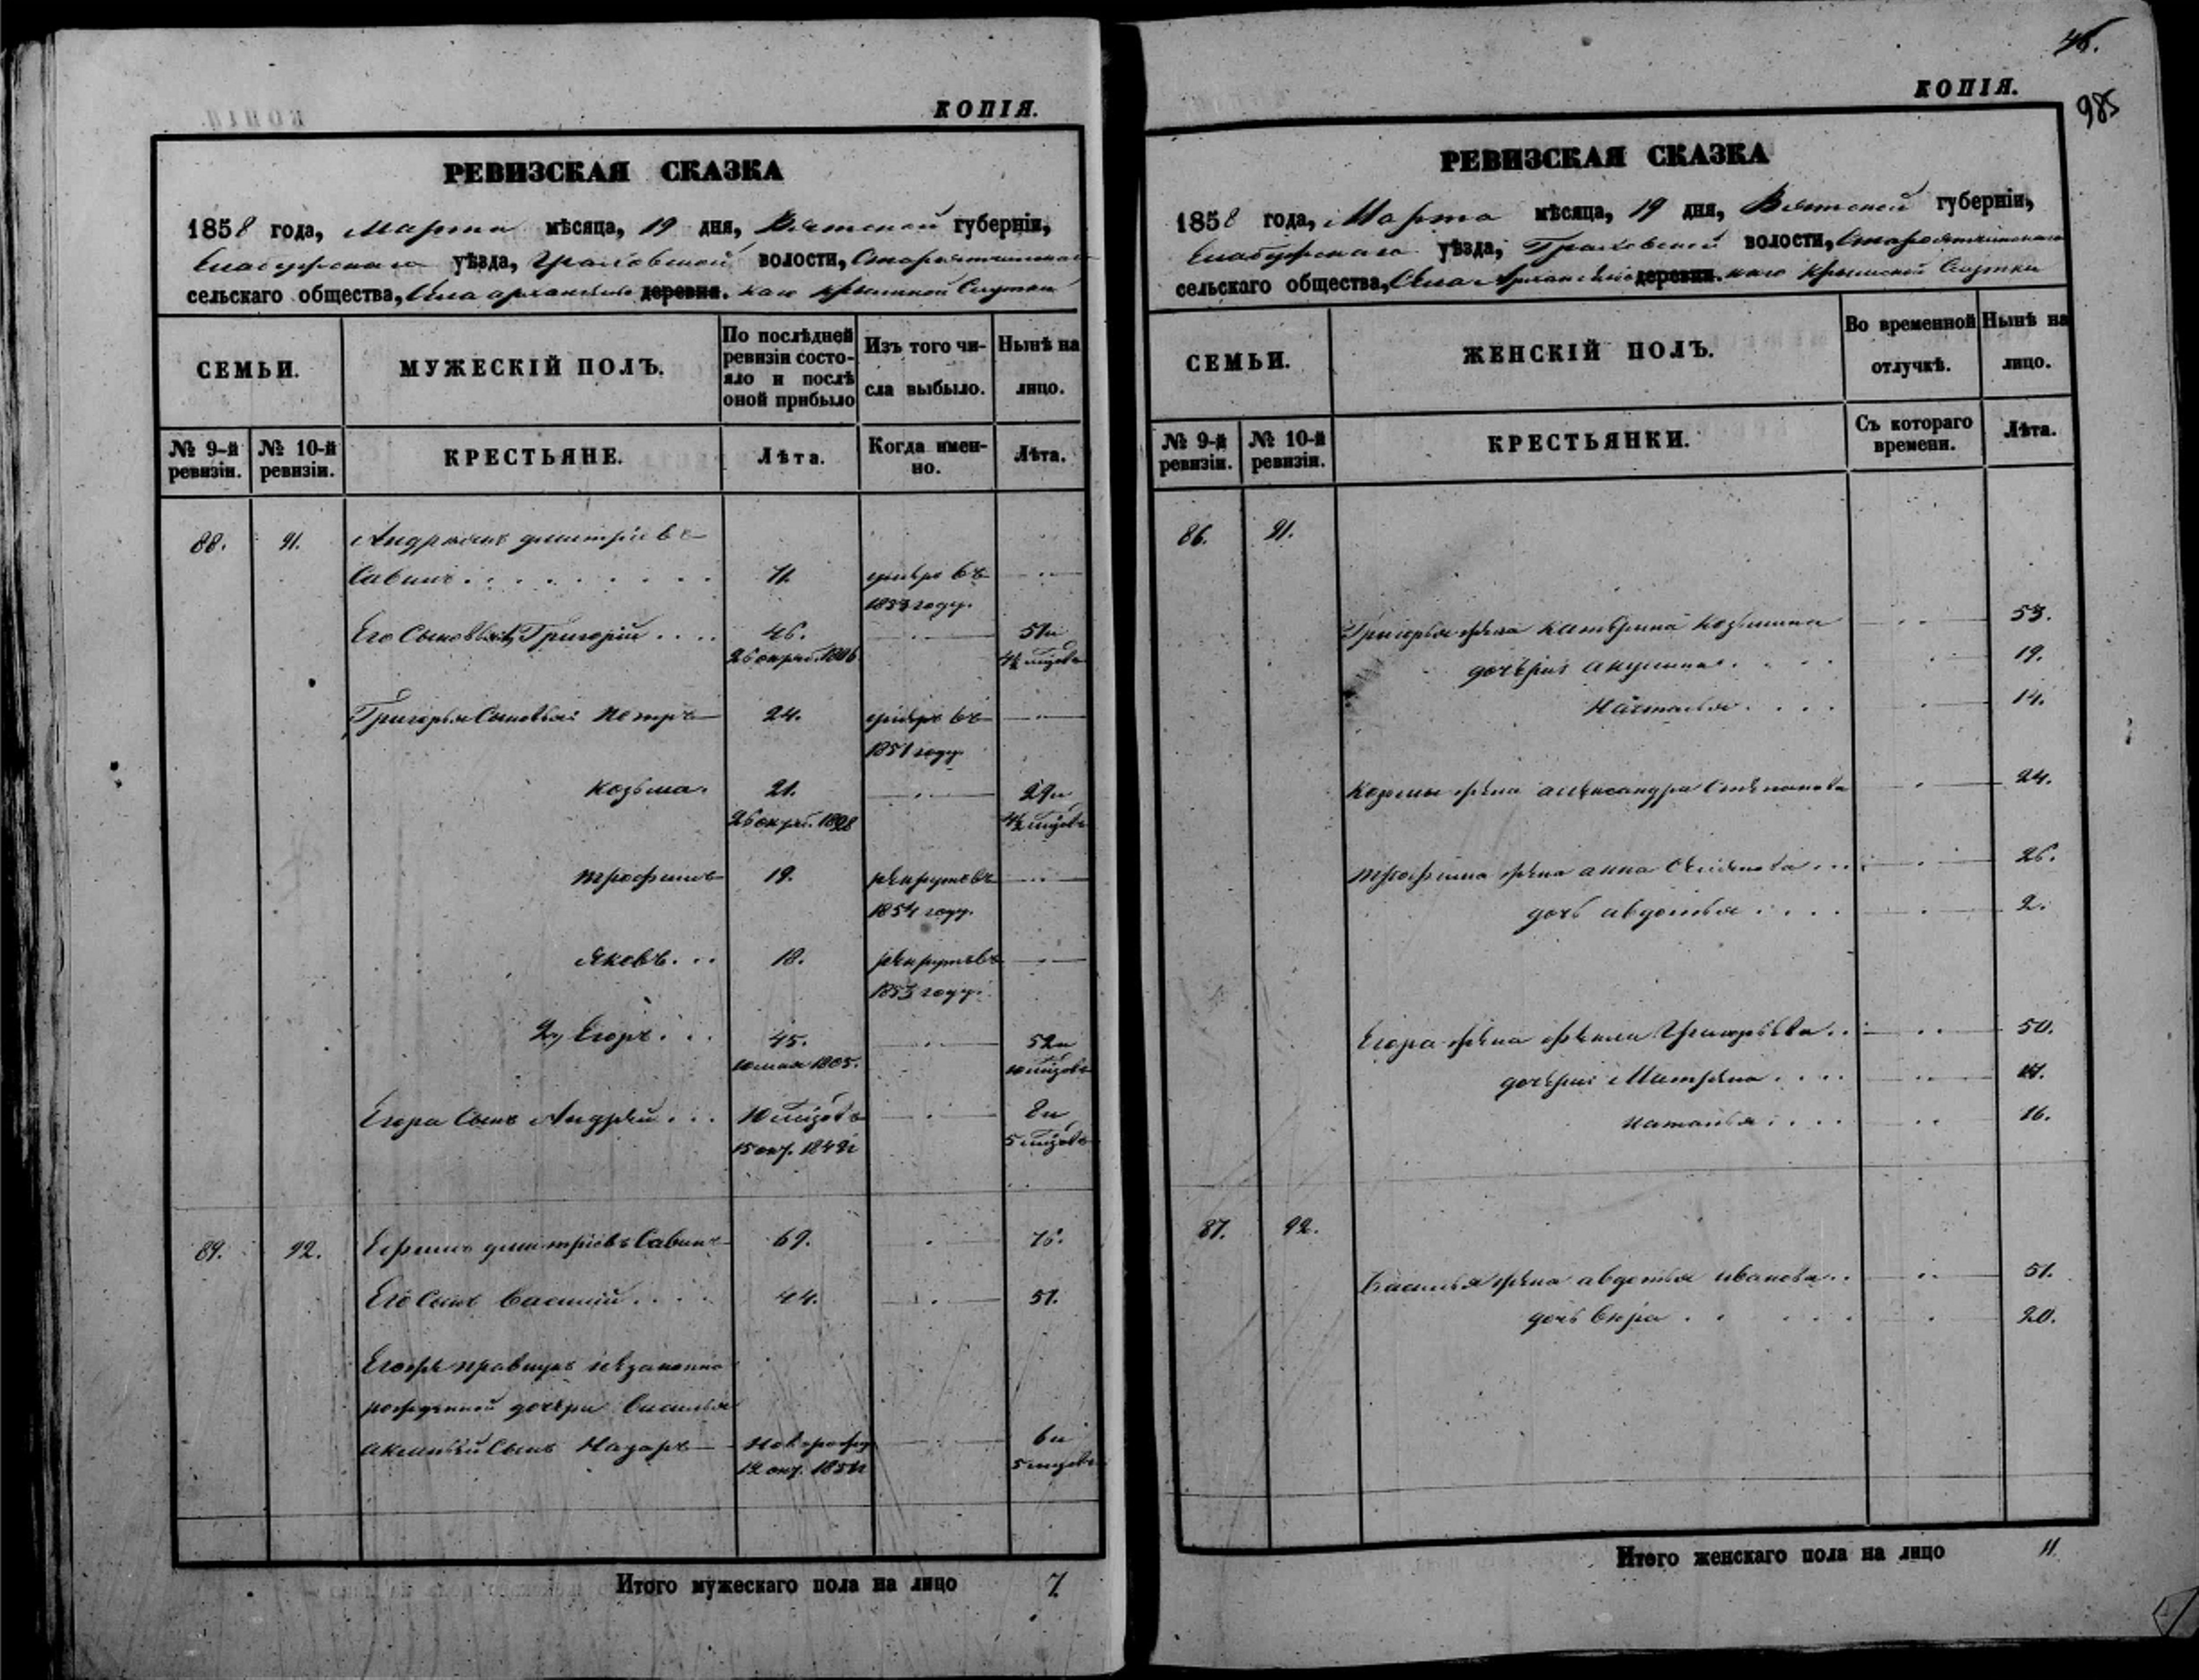 КОПІЯ.
РЕВИЗСКАЯ СКАЗКА
1858 года, Марта мѣсяца, 19 дня, Вятской губерніи,
Елабужскаго уѣзда, Граховской волости,
сельскаго общества, Села деревни. Крымской Слутки
СЕМЬИ.
МУЖЕСКІЙ ПОЛЪ.
По послѣдней ревизіи состояло и послѣ оной прибыло
Изъ того числа выбыло.
Нынѣ на лицо.
№ 9-й ревизіи.
№ 10-й ревизіи.
КРЕСТЬЯНЕ.
Лѣта.
Когда именно.
Лѣта.
88. 91. дмитріевъ
Савинъ 71. умеръ въ
1853 году.
Его Сыновья 1, Григорій 46. 51 и
26 1806 4½ мѣсяцовъ
Григорья Сыновья: Петръ 24. умеръ въ
1851 году.
Козьма. 21. 29 и
26 1828 4½ мѣсяцовъ
Трофимъ 19. рекрутъ въ
1854 году.
Яковъ 18. рекрутъ въ
1853 году.
2, Егоръ 45. 52 и
10 мая 1805. 10 мѣсяцовъ
Егора Сынъ Андрей 8 и
15 окт. 1849 г 5 мѣсяцовъ
89. 92. Ефимъ дмитріевъ Савинъ 69. 76.
Его Сынъ Василій 44. 51.
Егожъ правнукъ незаконно
рожденной дочери Василья
Сынъ Назаръ новорожд 6 и
12 окт. 1851 г 5 мѣсяцовъ
Итого мужескаго пола на лицо 7.
46.
985
КОПІЯ.
РЕВИЗСКАЯ СКАЗКА
1858 года, Марта мѣсяца, 19 дня, Вятской губерніи,
Елабужскаго уѣзда, Граховской волости,
сельскаго общества, Села деревни. Крымской Слутки
СЕМЬИ.
ЖЕНСКІЙ ПОЛЪ.
Во временной отлучкѣ.
Нынѣ на лицо.
№ 9-й ревизіи.
№ 10-й ревизіи.
КРЕСТЬЯНКИ.
Съ котораго времени.
Лѣта.
86. 91.
Григорья жена Катерина Козьмина 53.
дочери Акулина 19.
Настасья 14.
Козьмы жена Александра Степанова 24.
Трофима жена Анна 26.
дочь Авдотья 2.
Егора жена Фекла Григорьева 50.
дочери Матрена
Наталья 16.
87. 92.
Василья жена Авдотья Иванова 51.
дочь Вѣра 20.
Итого женскаго пола на лицо 11